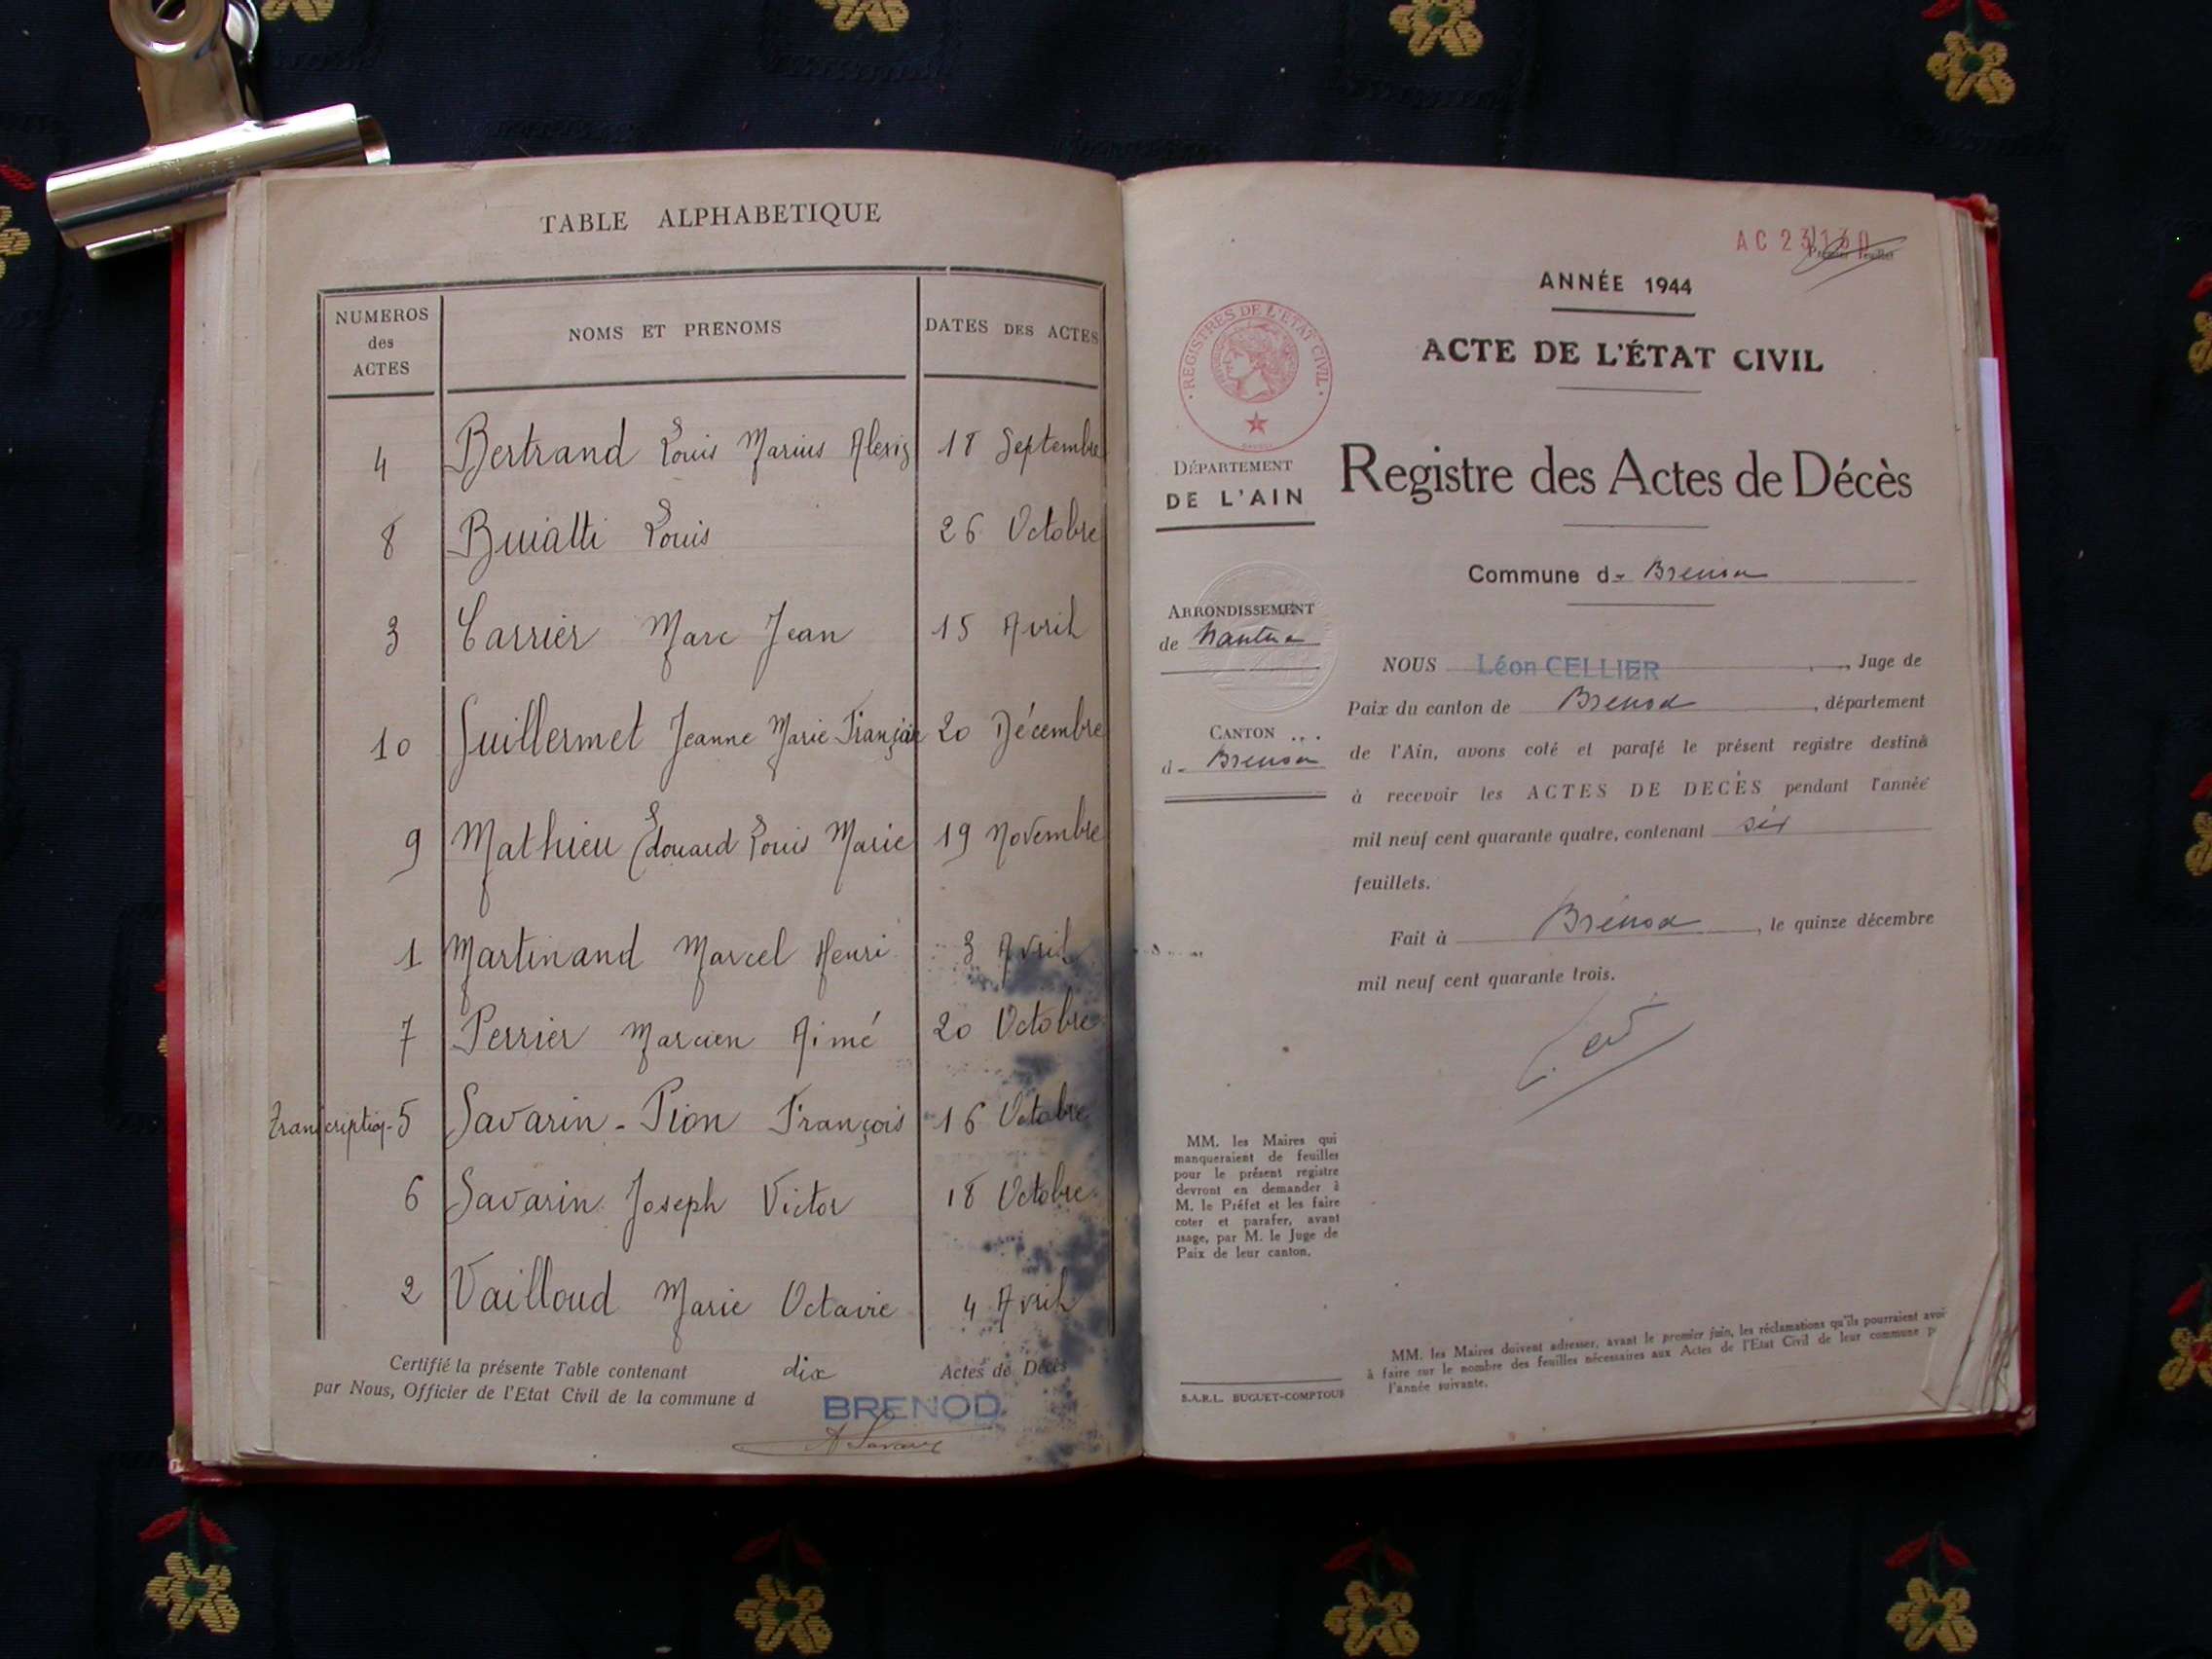 TABLE ALPHABETIQUE
NUMEROS
des
ACTES
NOMS ET PRENOMS
DATES DES ACTES
4 Bertrand Louis Marius Alexis 18 Septembre
8 Buiatti Louis 26 Octobre
3 Carrier Marc Jean 15 Avril
10 Guillermet Jeanne Marie Françoise 20 Décembre
9 Mathieu Edouard Louis Marie 19 Novembre
1 Martinand Marcel Henri 3 Avril
7 Perrier Marcien Aimé 20 Octobre
Transcription-5 Savarin-Pion François 16 Octobre
6 Savarin Joseph Victor 18 Octobre
2 Vailloud Marie Octavie 4 Avril
Certifié la présente Table contenant dix Actes de Décès
par Nous, Officier de l'Etat Civil de la commune d BRENOD
AC 23130
Premier feuillet
ANNÉE 1944
REGISTRES DE L'ÉTAT CIVIL
ACTE DE L'ÉTAT CIVIL
DÉPARTEMENT
DE L'AIN
Registre des Actes de Décès
Commune de Brenod
ARRONDISSEMENT
de Nantua
CANTON
de Brenod
NOUS Léon CELLIER, Juge de
Paix du canton de Brenod, département
de l'Ain, avons coté et parafé le présent registre destiné
à recevoir les ACTES DE DÉCÈS pendant l'année
mil neuf cent quarante quatre, contenant six
feuillets.
Fait à Brénod, le quinze décembre
mil neuf cent quarante trois.
MM. les Maires qui
manqueraient de feuilles
pour le présent registre
devront en demander à
M. le Préfet et les faire
coter et parafer, avant
usage, par M. le Juge de
Paix de leur canton.
S.A.R.L. BUGUET-COMPTOUR
MM. les Maires doivent adresser, avant le premier juin, les réclamations qu'ils pourraient avoir
à faire sur le nombre des feuilles nécessaires aux Actes de l'Etat Civil de leur commune p
l'année suivante.